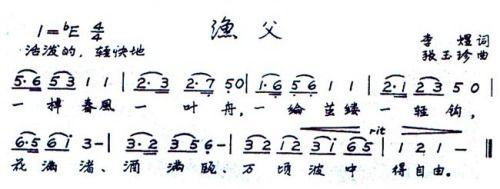 1=♭E 4/4 渔父 李煜词
活泼的，轻快地 张玉珍曲
5·6 53 1 1 | 2·3 2·7 50 | 1·6 56 1 1 | 2·1 23 5 0 |
一棹春風一叶舟，一纶茧缕一轻钩，
6·5 6i 3- | 3·2 23 56- | 32 12 3i 65 | 1 21 - ‖
rit
花满渚、酒满瓯、万顷波中得自由。